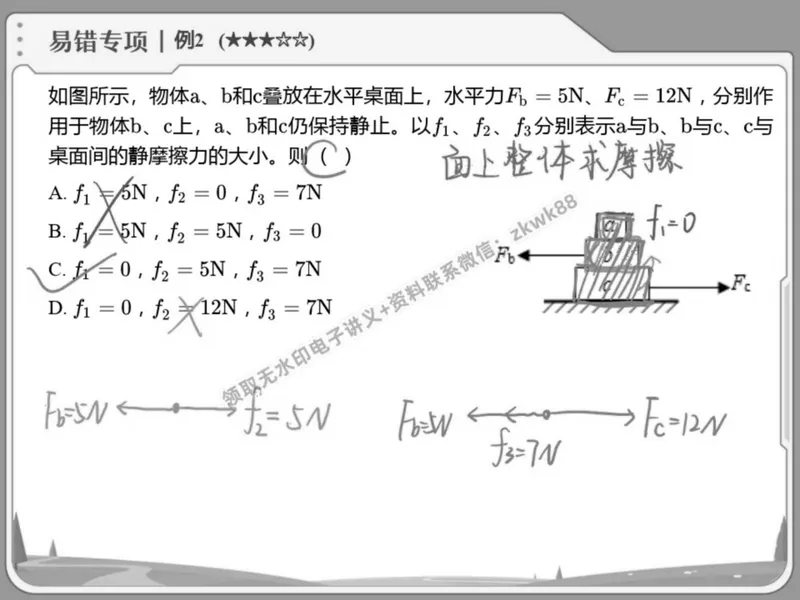 易错专项 | 例2 (★★★☆☆)
如图所示，物体a、b和c叠放在水平桌面上，水平力F_b = 5N、F_c = 12N，分别作
用于物体b、c上，a、b和c仍保持静止。以f_1、f_2、f_3分别表示a与b、b与c、c与
桌面间的静摩擦力的大小。则（C）
面上整体求摩擦
A. f_1 = 5N，f_2 = 0，f_3 = 7N
B. f_1 = 5N，f_2 = 5N，f_3 = 0
C. f_1 = 0，f_2 = 5N，f_3 = 7N
D. f_1 = 0，f_2 = 12N，f_3 = 7N
a f_1=0
F_b b
c F_c
领取无水印电子讲义+资料联系微信：zkwk88
F_b=5N f_2=5N
F_b=5N F_c=12N
f_3=7N